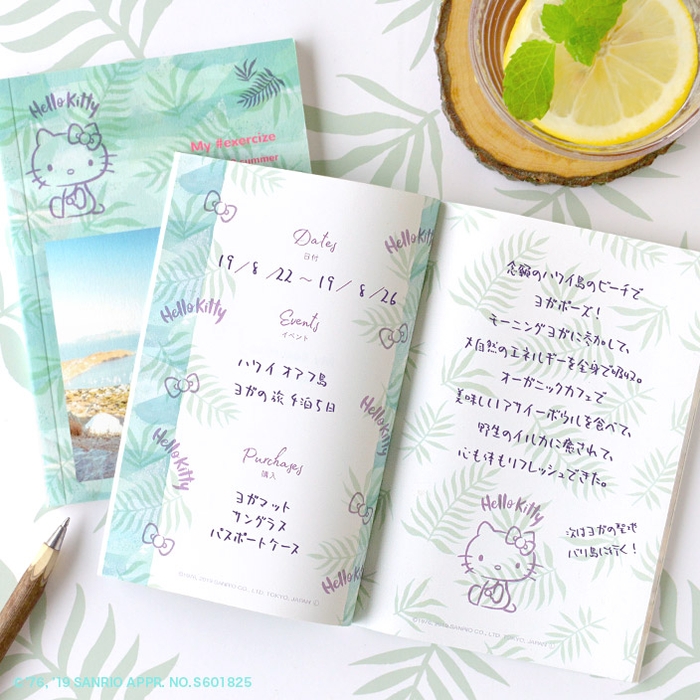 Hello Kitty
My #exercize
summer
Hello Kitty
Dates
日付
19/8/22〜19/8/26
Hello Kitty
Events
イベント
ハワイ オアフ島
ヨガの旅 4泊5日
Hello Kitty
Hello Kitty
Purchases
購入
ヨガマット
サングラス
パスポートケース
Hello Kitty
念願のハワイ島のビーチで
ヨガポーズ!
モーニングヨガに参加して、
大自然のエネルギーを全身で感じる。
オーガニックカフェで
美味しいアサイーボウルを食べて、
野生のイルカに癒されて、
心も体もリフレッシュできた。
Hello Kitty
次はヨガの聖地
バリ島に行く!
© '76, '19 SANRIO APPR. NO.S601825